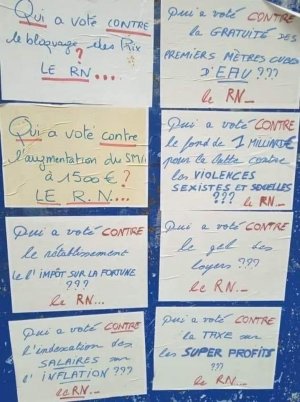 Qui a voté CONTRE
le bloquage des Prix
?
LE RN...
Qui a voté CONTRE
la GRATUITÉ DES
PREMIERS MÈTRES CUBES
D'EAU ???
le RN_
Qui a voté contre
l'augmentation du SMIC
à 1500€ ?
LE R.N...
Qui a voté CONTRE
le fond de 1 MILLIARD€
pour la lutte contre
les VIOLENCES
SEXISTES ET SEXUELLES
??? le RN...
Qui a voté CONTRE
le rétablissement
de l'IMPÔT SUR LA FORTUNE
???
le RN...
Qui a voté CONTRE
le gel des
loyers ???
le RN...
Qui a voté CONTRE
l'indexation des
SALAIRES sur
l'INFLATION ???
le RN...
Qui a voté CONTRE
la TAXE sur
les SUPER PROFITS
???
le RN...